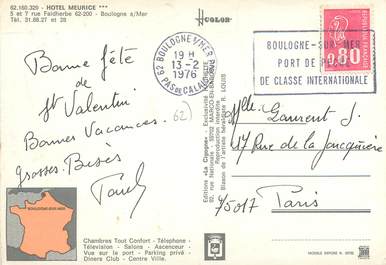 62.160.329 - HOTEL MEURICE ***
5 et 7 rue Faidherbe 62-200 - Boulogne s/Mer
Tél. 31.88.27 et 28
HCOLOR
Bonne fête
de
St Valentin
Bonnes Vacances.
Grosses Bises
62)
62 BOULOGNE S/MER
19 H
13-2
1976
PAS DE CALAIS
BOULOGNE-SUR-MER
PORT DE
DE CLASSE INTERNATIONALE
0,80
Editions «La Cigogne» - Exclusivité
Reproduction interdite
Melle Laurent S.
17 Rue de la Jonquière
75017 Paris
BOULOGNE-SUR-MER
Chambres Tout Confort - Téléphone -
Télévision - Salons - Ascenseur -
Vue sur le port - Parking privé -
Diners Club - Centre Ville.